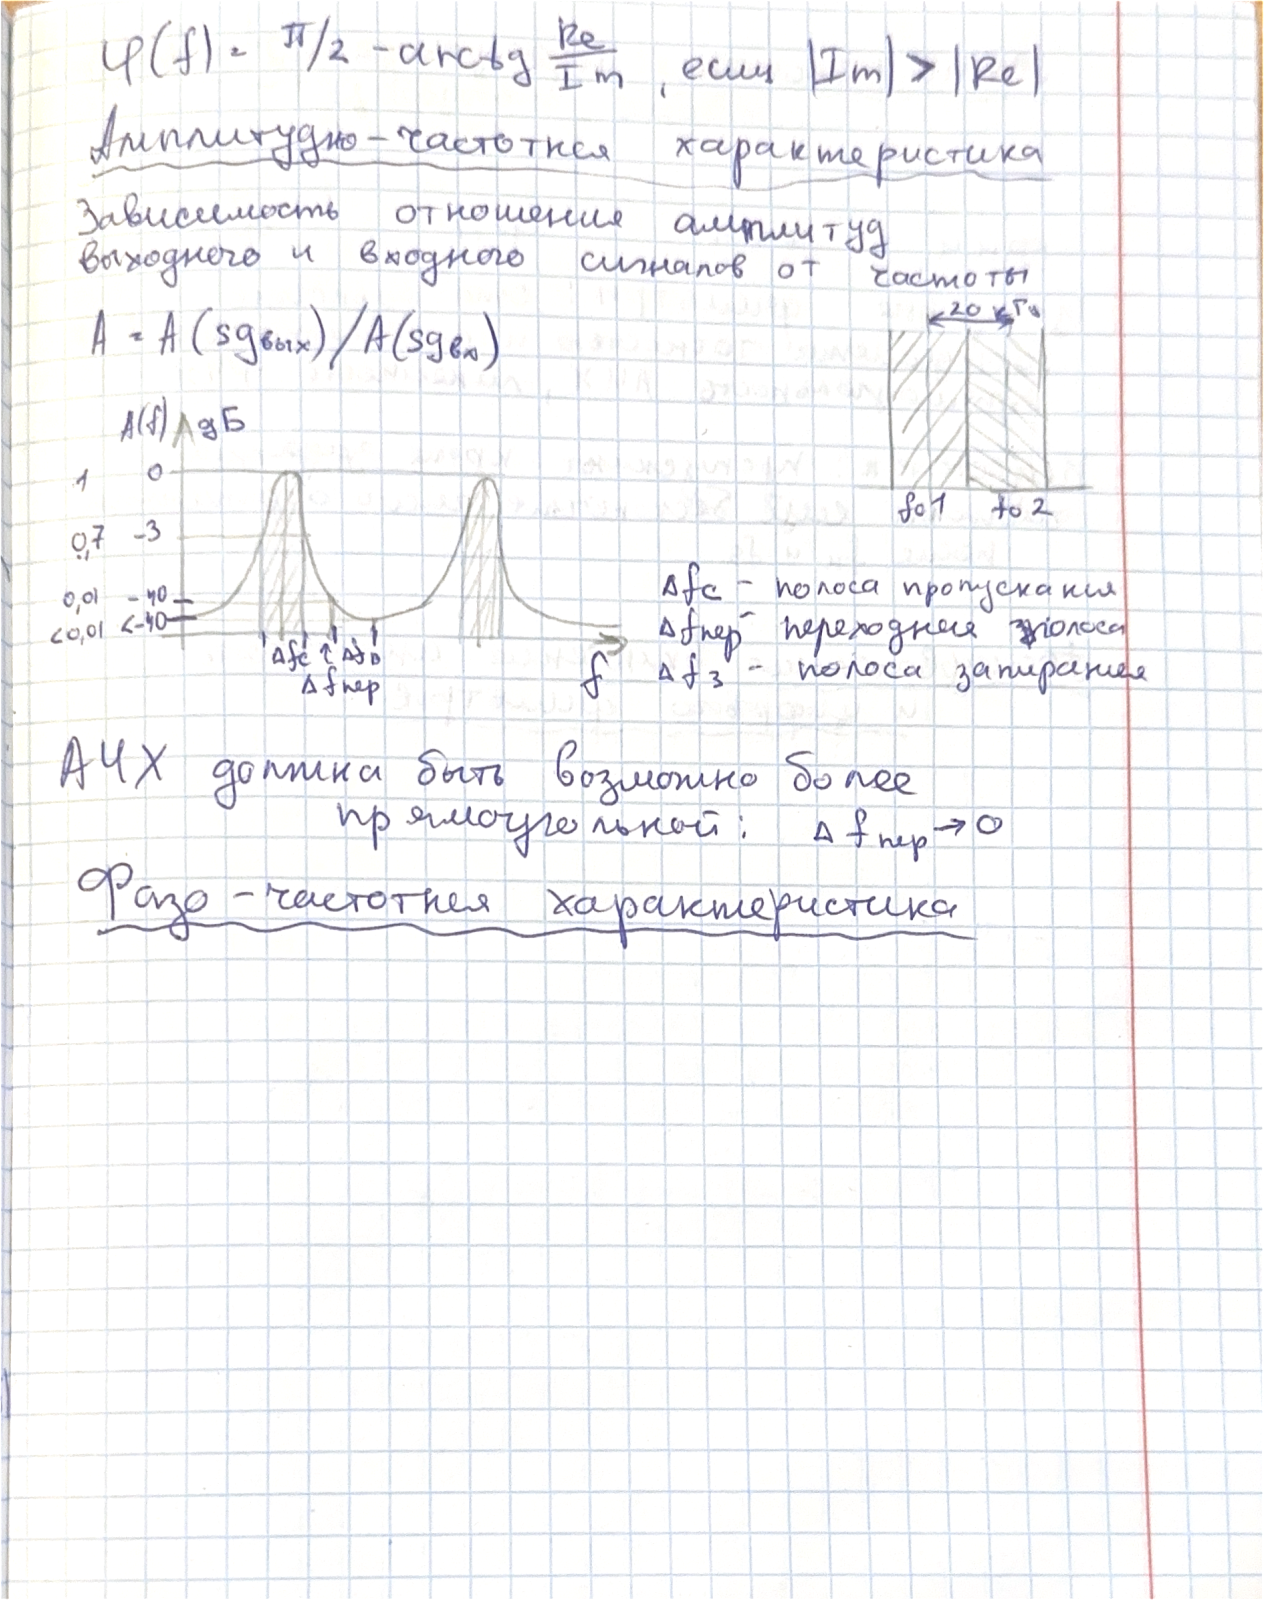 φ(f) = π/2 - arctg Re/Im, если |Im| > |Re|
Амплитудно-частотная характеристика
Зависимость отношения амплитуд
выходного и входного сигналов от частоты
A = A(sgвых)/A(sgвх)
20 кГц
fo1 fo2
A(f) дБ
1 0
0,7 -3
0,01 -40
<0,01 <-40
Δfc Δf
Δfпер
f
Δfc - полоса пропускания
Δfпер - переходная полоса
Δfз - полоса запирания
АЧХ должна быть возможно более
прямоугольной: Δfпер → 0
Фазо-частотная характеристика